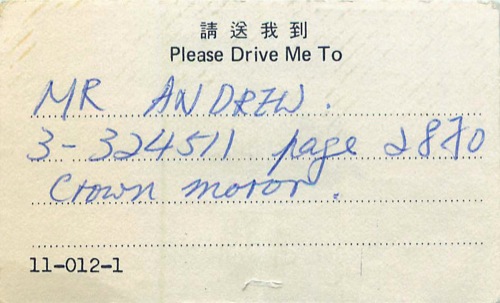 請送我到
Please Drive Me To
MR ANDREW.
3-324511 page 2870
Crown motor.
11-012-1